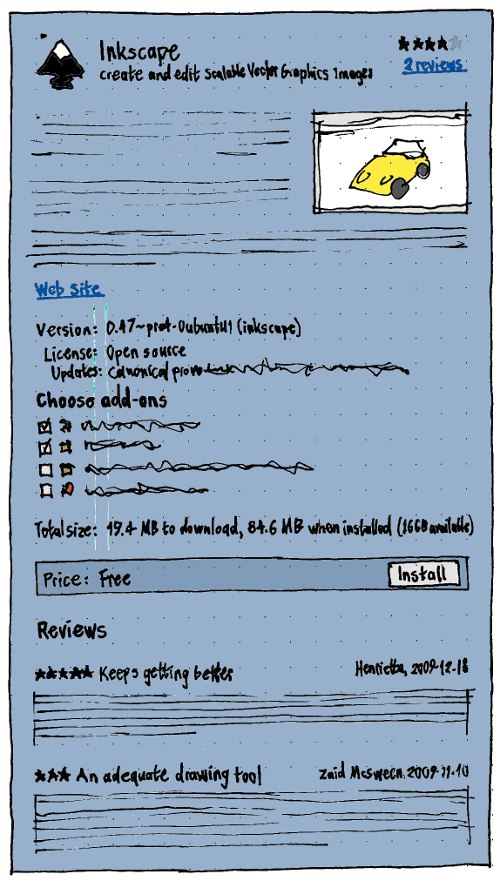 Inkscape
create and edit Scalable Vector Graphics Images
2 reviews
Web site
Version: 0.47~pre4-0ubuntu1 (inkscape)
License: Open source
Updates: Canonical prov
Choose add-ons
Total size: 19.4 MB to download, 84.6 MB when installed (16GB available)
Price: Free
Install
Reviews
Keeps getting better
Henrietta, 2009-12-18
An adequate drawing tool
Zaid McSween, 2009-11-10